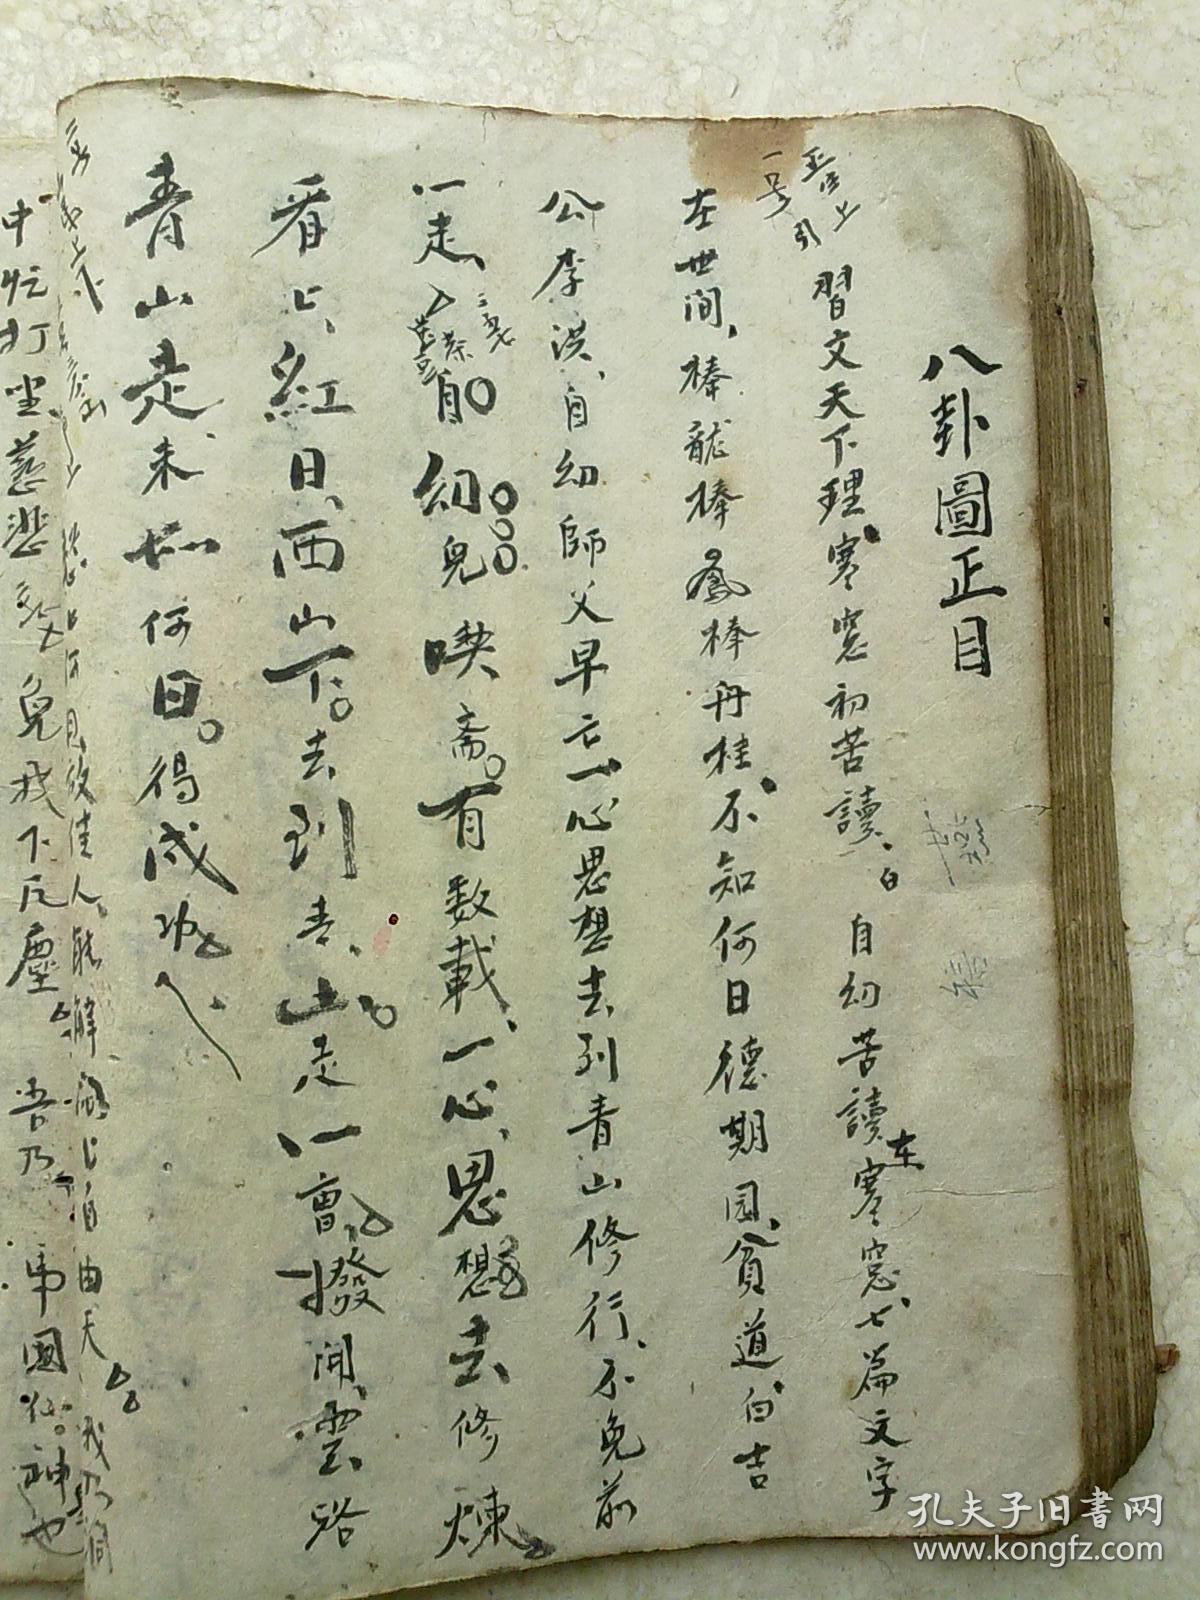 八卦圖正目
一号 引 習文天下理、寒窓初苦讀、白 自幼苦讀在寒窓、七篇文字
在世間、棒龍棒鳳棒丹桂、不知何日德期园、貧道、白吉
公李洪、自幼師父早亡一心思想去到青山修行、不免前
一走、自幼兒喫斋。有数載、一心、思想去修煉
看上、紅日、西山下。去到青、山走一會、撥開、雲路
青山走、未知何日。得成功
中忙打坐 慈悲 免我下凡塵 吾乃 神也
佳人、能解 自由天 我乃洞
孔夫子旧书网
www.kongfz.com